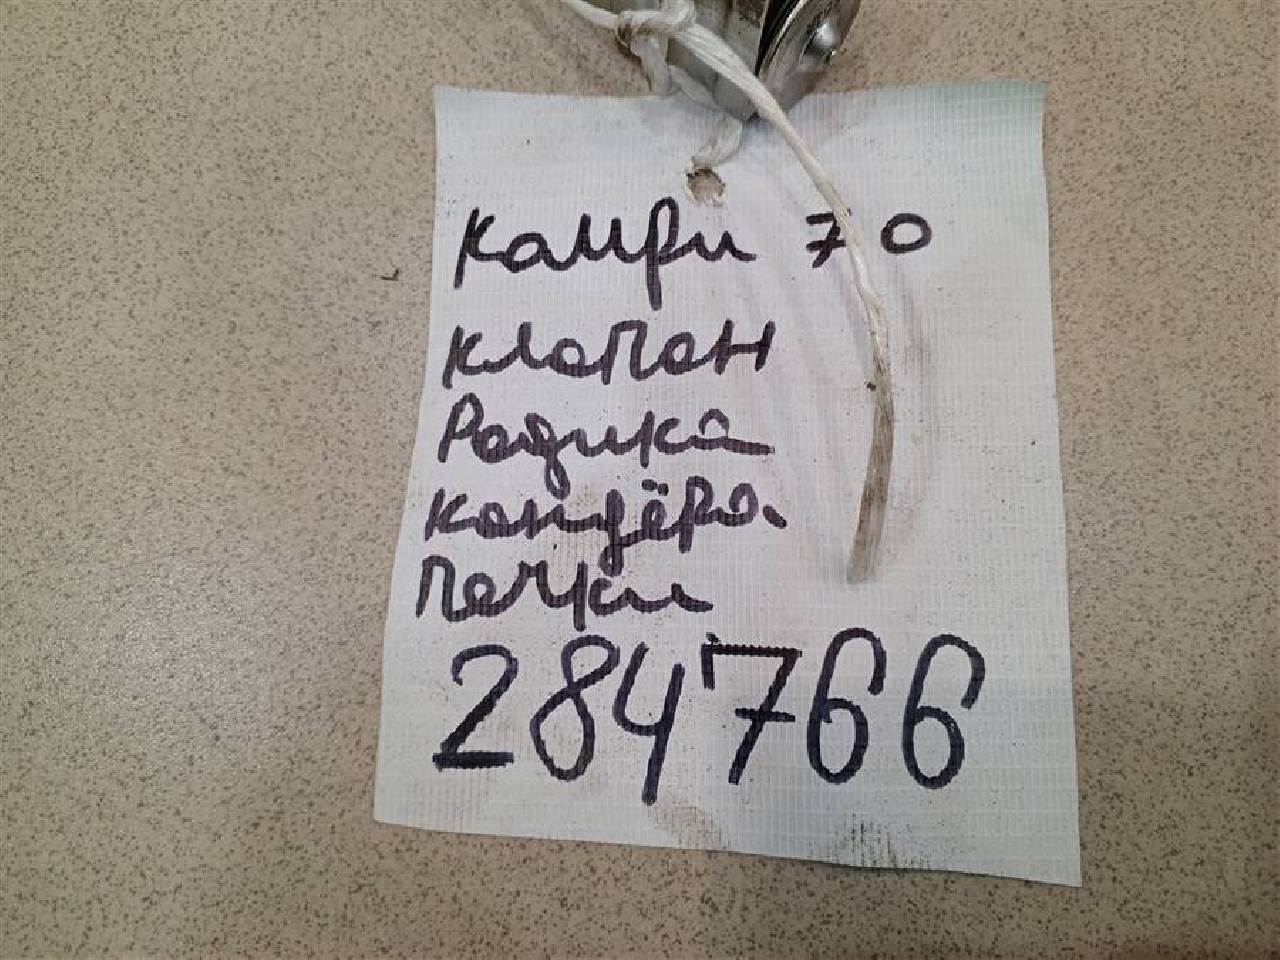 Камри 70
клапан
Радика
кондёра
Печки
284766